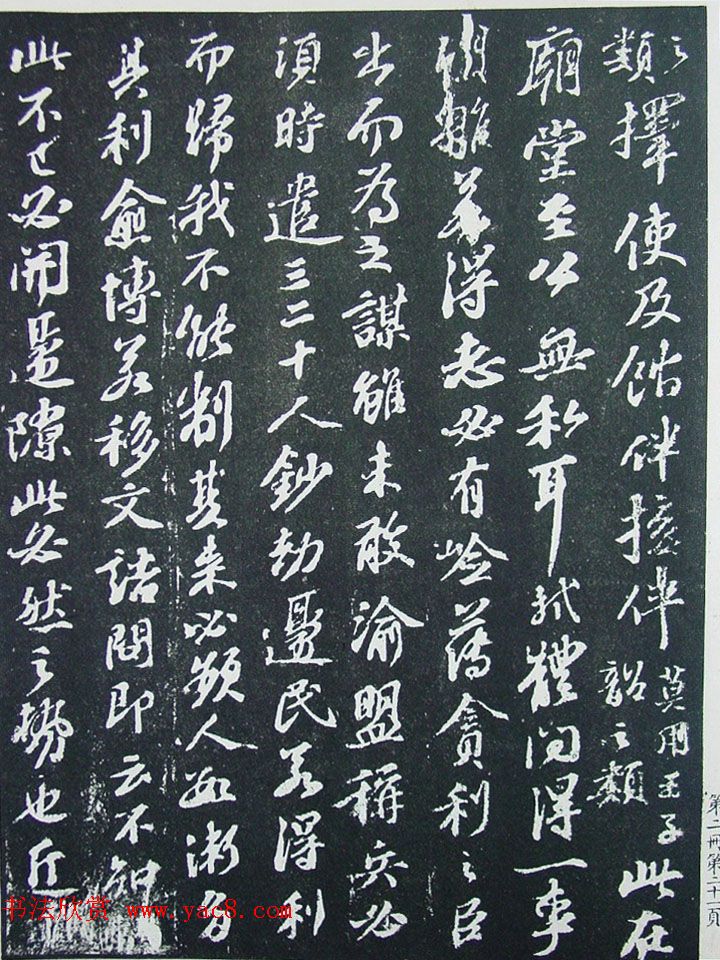 之類擇使及館伴接伴莫用王子韶之類此在
廟堂至公無私耳軾體问得一事
胡雛若得志必有嶮薄貪利之臣
出而為之謀雖未敢渝盟稱兵必
須時遣三二十人鈔劫邊民若得利
而歸我不能制其來必頻人數漸多
其利愈博若移文詰問即云不知
此不已必開邊隙此必然之勢也近
第二冊第
书法欣赏 www.yac8.com